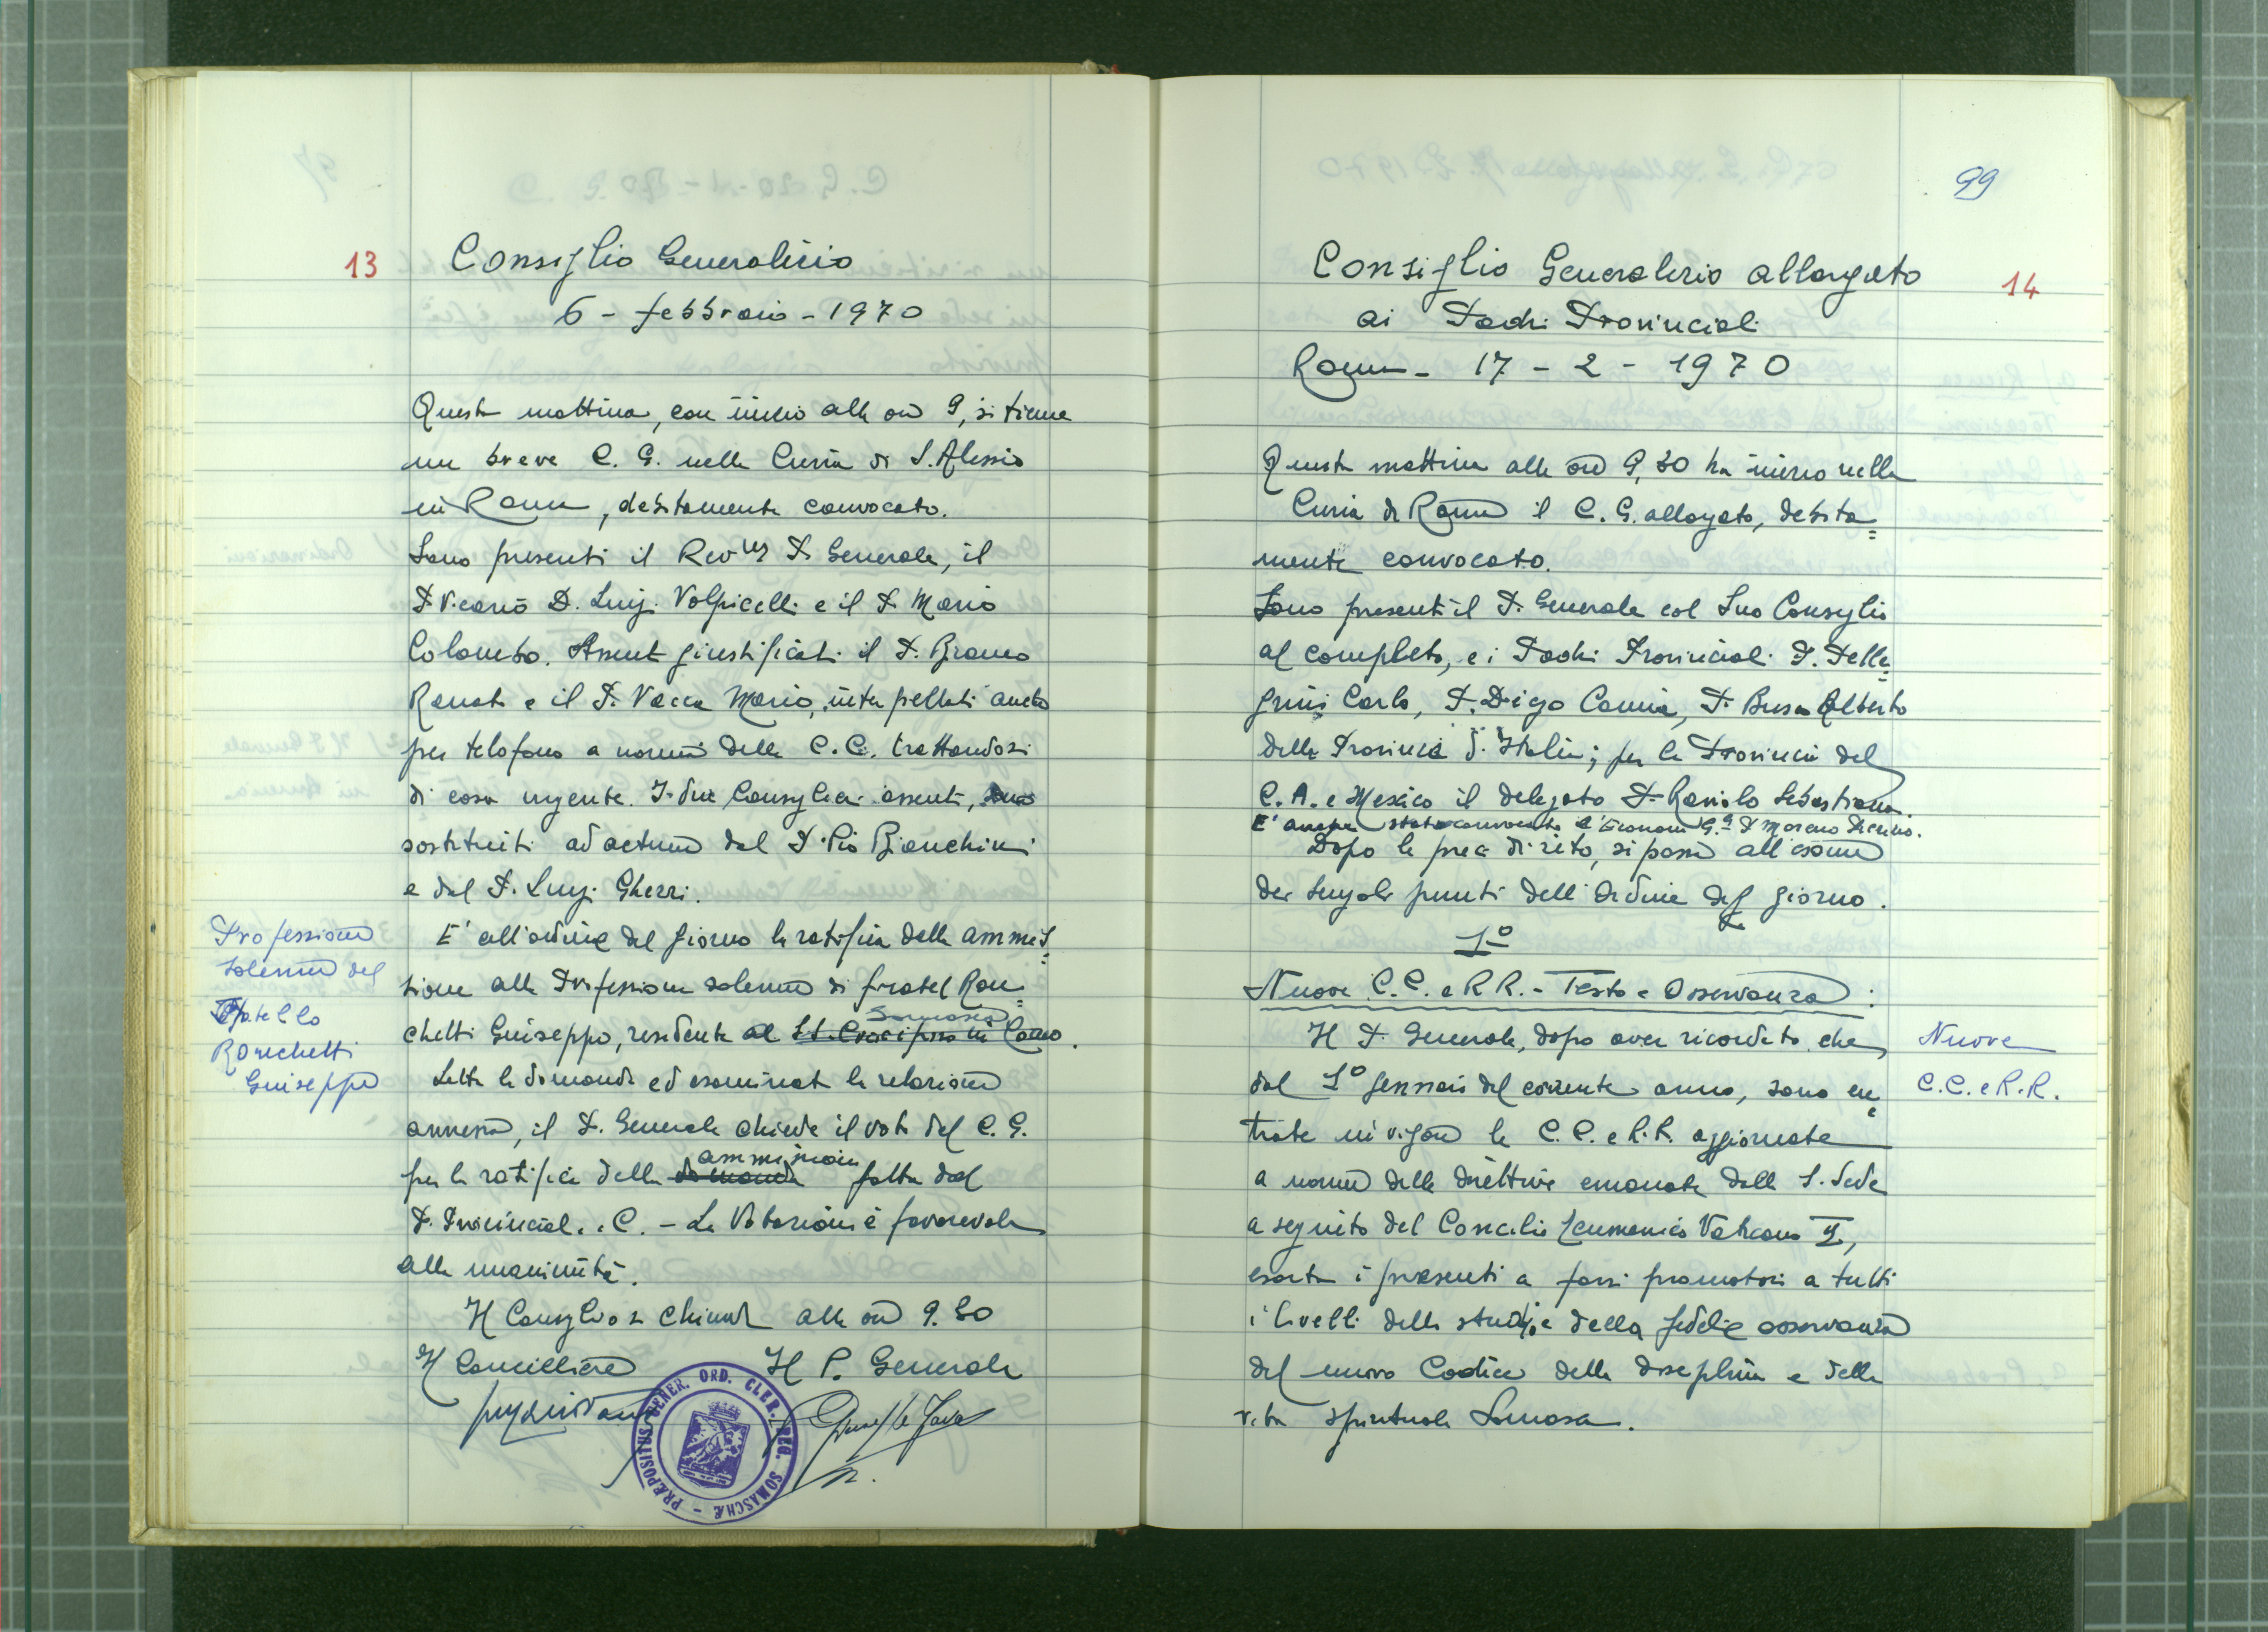 13
Consiglio Generalizio
6 - febbraio - 1970
Questa mattina, con inizio alle ore 9, si tiene
un breve C. G. nella Curia di S. Alessio
in Roma, debitamente convocato.
Sono presenti il Rev.mo P. Generale, il
P. Vicario D. Luigi Volpicelli e il P. Mario
Colombo. Assenti giustificati il P. Bianco
Renato e il P. Vacca Mario, interpellati anche
per telefono a norma delle C.C. trattandosi
di cosa urgente. I due Consiglieri assenti, sono
sostituiti ad actum dal P. Pio Bianchini
e dal P. Luigi Gherri.
Professione
solenne del
Fratello
Ronchetti
Giuseppe
E' all'ordine del giorno la ratifica della ammis=
sione alla Professione solenne di fratel Ron=
chetti Giuseppe, residente al SS. Crocifisso in Como.
Somasca
Letta la domanda ed esaminata la relazione
annessa, il P. Generale chiede il voto del C. G.
per la ratifica della domanda ammissione fatta dal
P. Provinciale e C. - La Votazione è favorevole
alla unanimità.
Il Consiglio si chiude alle ore 9.30
Il Cancelliere Il P. Generale
PRÆPOSITUS GENER. ORD. CLER. REG. SOMASCHÆ
99
14
Consiglio Generalizio allargato
ai Padri Provinciali
Roma - 17 - 2 - 1970
Questa mattina alle ore 9,30 ha inizio nella
Curia di Roma il C. G. allargato, debita=
mente convocato.
Sono presenti il P. Generale col Suo Consiglio
al completo, e i Padri Provinciali P. Pelle=
grini Carlo, P. Diego Camia, P. Busco Alberto
delle Provincie d'Italia; per la Provincia del
C. A. e Mexico il delegato P. Raviolo Sebastiano.
E' anche stato convocato l'Economo G.le P. Moreno
Dopo le preci di rito, si passa all'esame
dei singoli punti dell'Ordine del giorno.
1º
Nuove C.C. e RR. - Testo e Osservanza:
Nuove
C.C. e R.R.
Il P. Generale, dopo aver ricordato che,
dal 1º gennaio del corrente anno, sono en=
trate in vigore le C.C. e R.R. aggiornate
a norma delle direttive emanate dalla S. Sede
a seguito del Concilio Ecumenico Vaticano II,
esorta i presenti a farsi promotori a tutti
i livelli dello studio e della fedele osservanza
del nuovo Codice della disciplina e della
vita spirituale Somasca.